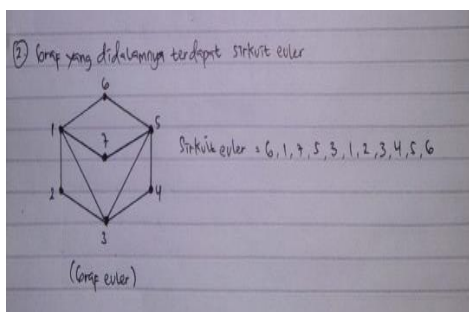 ② Graf yang didalamnya terdapat sirkuit euler
6
1
5
7
Sirkuit euler = 6, 1, 7, 5, 3, 1, 2, 3, 4, 5, 6
2
4
3
(Graf euler)